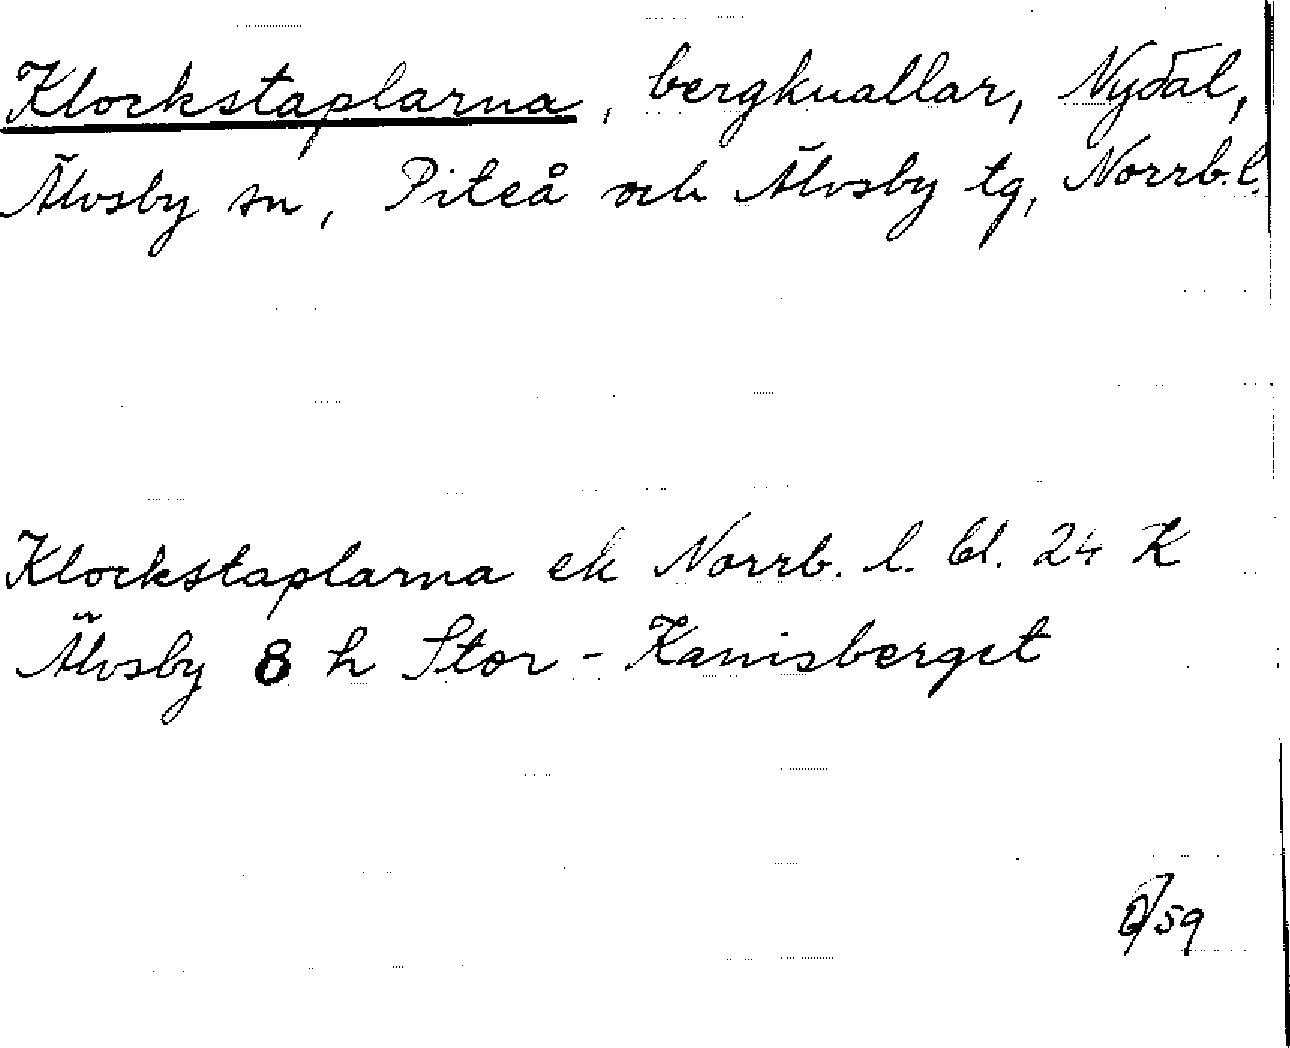 Klockstaplarna, bergknallar, Nydal,
Älvsby sn, Piteå och Älvsby tg, Norrb. l.
Klockstaplarna ek Norrb. l. bl. 24 K
Älvsby 8 h Stor-Kanisberget
/59